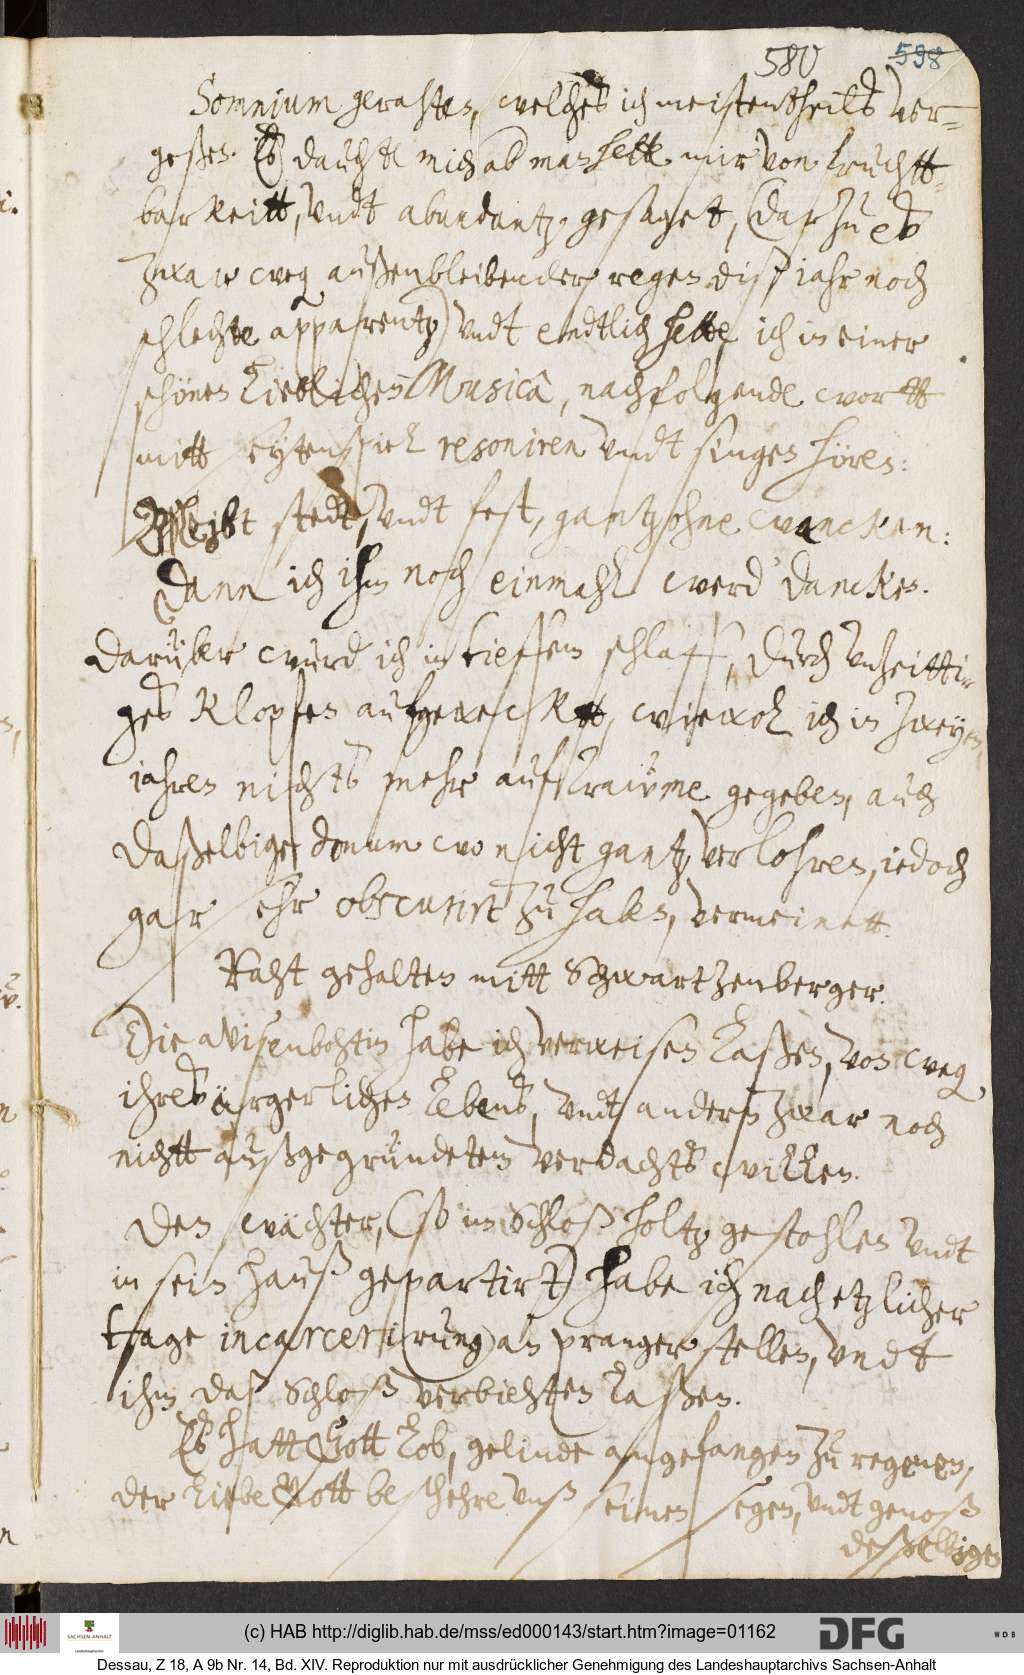 580 598
Somnium gerahten, welches ich meistentheils ver-
geßen. Es dauchte mich ob man hette mir von fruchtt-
barkeitt, undt abundantz, gesaget, (darzu es
zwar weg außenbleibender regen diß jahr noch
schlechte apparentz) undt endtlich hette ich in einer
schönen lieblichen Musicâ, nachfolgende wortt
mitt seytenspiel resoniren undt singen hören:
Bleibt stedt, undt fest, gantz ohne wancken:
Dann ich ihm noch einmahl werd' dancken.
Darüber wurd ich in tieffem schlaff, durch unzeitti-
ges klopfen aufgewecktt, wiewol ich in zweyen
jahren nichts mehr auf traüme gegeben, auch
daßelbige donum wo nicht gantz verlohren, jedoch
gar sehr obscurirt zu haben, vermeinett.
Raht gehalten mitt Schwartzenberger.
Die avisenbohtin habe ich verweisen laßen, von weg
ihres ärgerlichen lebens, undt anders zwar noch
nichtt außgegründeten verdachts willen.
Den wächter, (so im Schloß holtz gestohlen undt
in sein hauß gepartirt) habe ich nach etzlicher
tage incarcerirung an pranger stellen, undt
ihm daß Schloß verbiehten laßen.
Es hatt Gott lob, gelinde angefangen zu regenen,
der liebe Gott beschehre unß seinen segen, undt genoß
deßelbigen
(c) HAB http://diglib.hab.de/mss/ed000143/start.htm?image=01162
SACHSEN-ANHALT
DFG
WDB
Dessau, Z 18, A 9b Nr. 14, Bd. XIV. Reproduktion nur mit ausdrücklicher Genehmigung des Landeshauptarchivs Sachsen-Anhalt